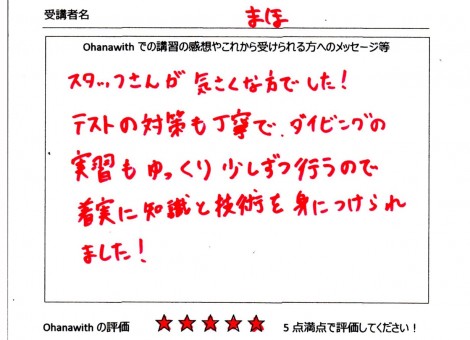 受講者名 まほ
Ohanawith での講習の感想やこれから受けられる方へのメッセージ等
スタッフさんが気さくな方でした！
テストの対策も丁寧で、ダイビングの
実習もゆっくり少しずつ行うので
着実に知識と技術を身につけられ
ました！
Ohanawith の評価 ★★★★★ 5 点満点で評価してください！